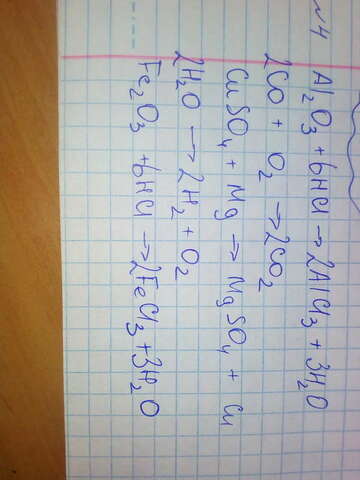 №4
Al₂O₃ + 6HCl → 2AlCl₃ + 3H₂O
2CO + O₂ → 2CO₂
CuSO₄ + Mg → MgSO₄ + Cu
2H₂O → 2H₂ + O₂
Fe₂O₃ + 6HCl → 2FeCl₃ + 3H₂O